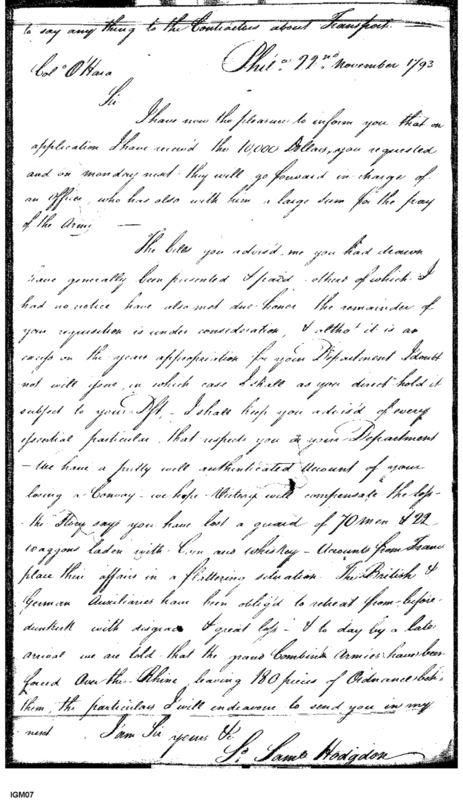 to say any thing to the Contractors about Transport.
Phila. 22nd November 1793
Colo O'Hara
Sir
I have now the pleasure to inform you that on
application I have receiv'd the 10,000 Dollars, you requested
and on monday next they will go forward in charge of
an officer, who has also with him a large sum for the pay
of the Army —
The bills you advis'd me you had drawn
have generally been presented & paid - others of which I
had no notice have also met due honor the remainder of
your requisition is under consideration, & altho' it is an
excess on the years appropriation for your Department I doubt
not will gone, in which case I shall as you direct hold it
subject to your Dft. - I shall keep you advis'd of every
essential particular that respects you or your Department
- We have a pretty well authenticated account of your
losing a Convoy - we hope Victory will compensate the loss -
the Story says you have lost a guard of 70 men & 22
waggons laden with Corn and whiskey - Accounts from France
place their affairs in a flattering situation. The British &
German Auxiliaries have been oblig'd to retreat from before
dunkirk with disgrace & great loss - & to day by a late
arrival we are told that the grand Combin'd Armies have been
forced Over the Rhine leaving 180 pieces of Ordnance behind
them, the particulars I will endeavour to send you in my
next I am Sir yours &c
Sd. Saml Hodgdon
IGM07